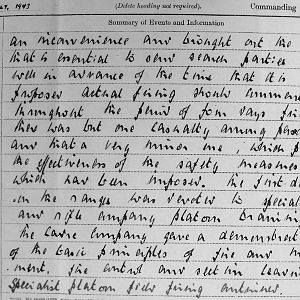 1943
(Delete heading not required).
Commanding
Summary of Events and Information
an inconvenience and brought out the
that is essential to send search parties
well in advance of the time that it is
proposed actual firing should commence
throughout the period of four days
there was but one casualty among
and that a very minor one, which
the effectiveness of the safety measures
which had been imposed. The first
on the range was devoted to special
and rifle company platoon training
the Carre company gave a
of the basic principles of fire and
ment, fire control and section
specialist platoon field firing